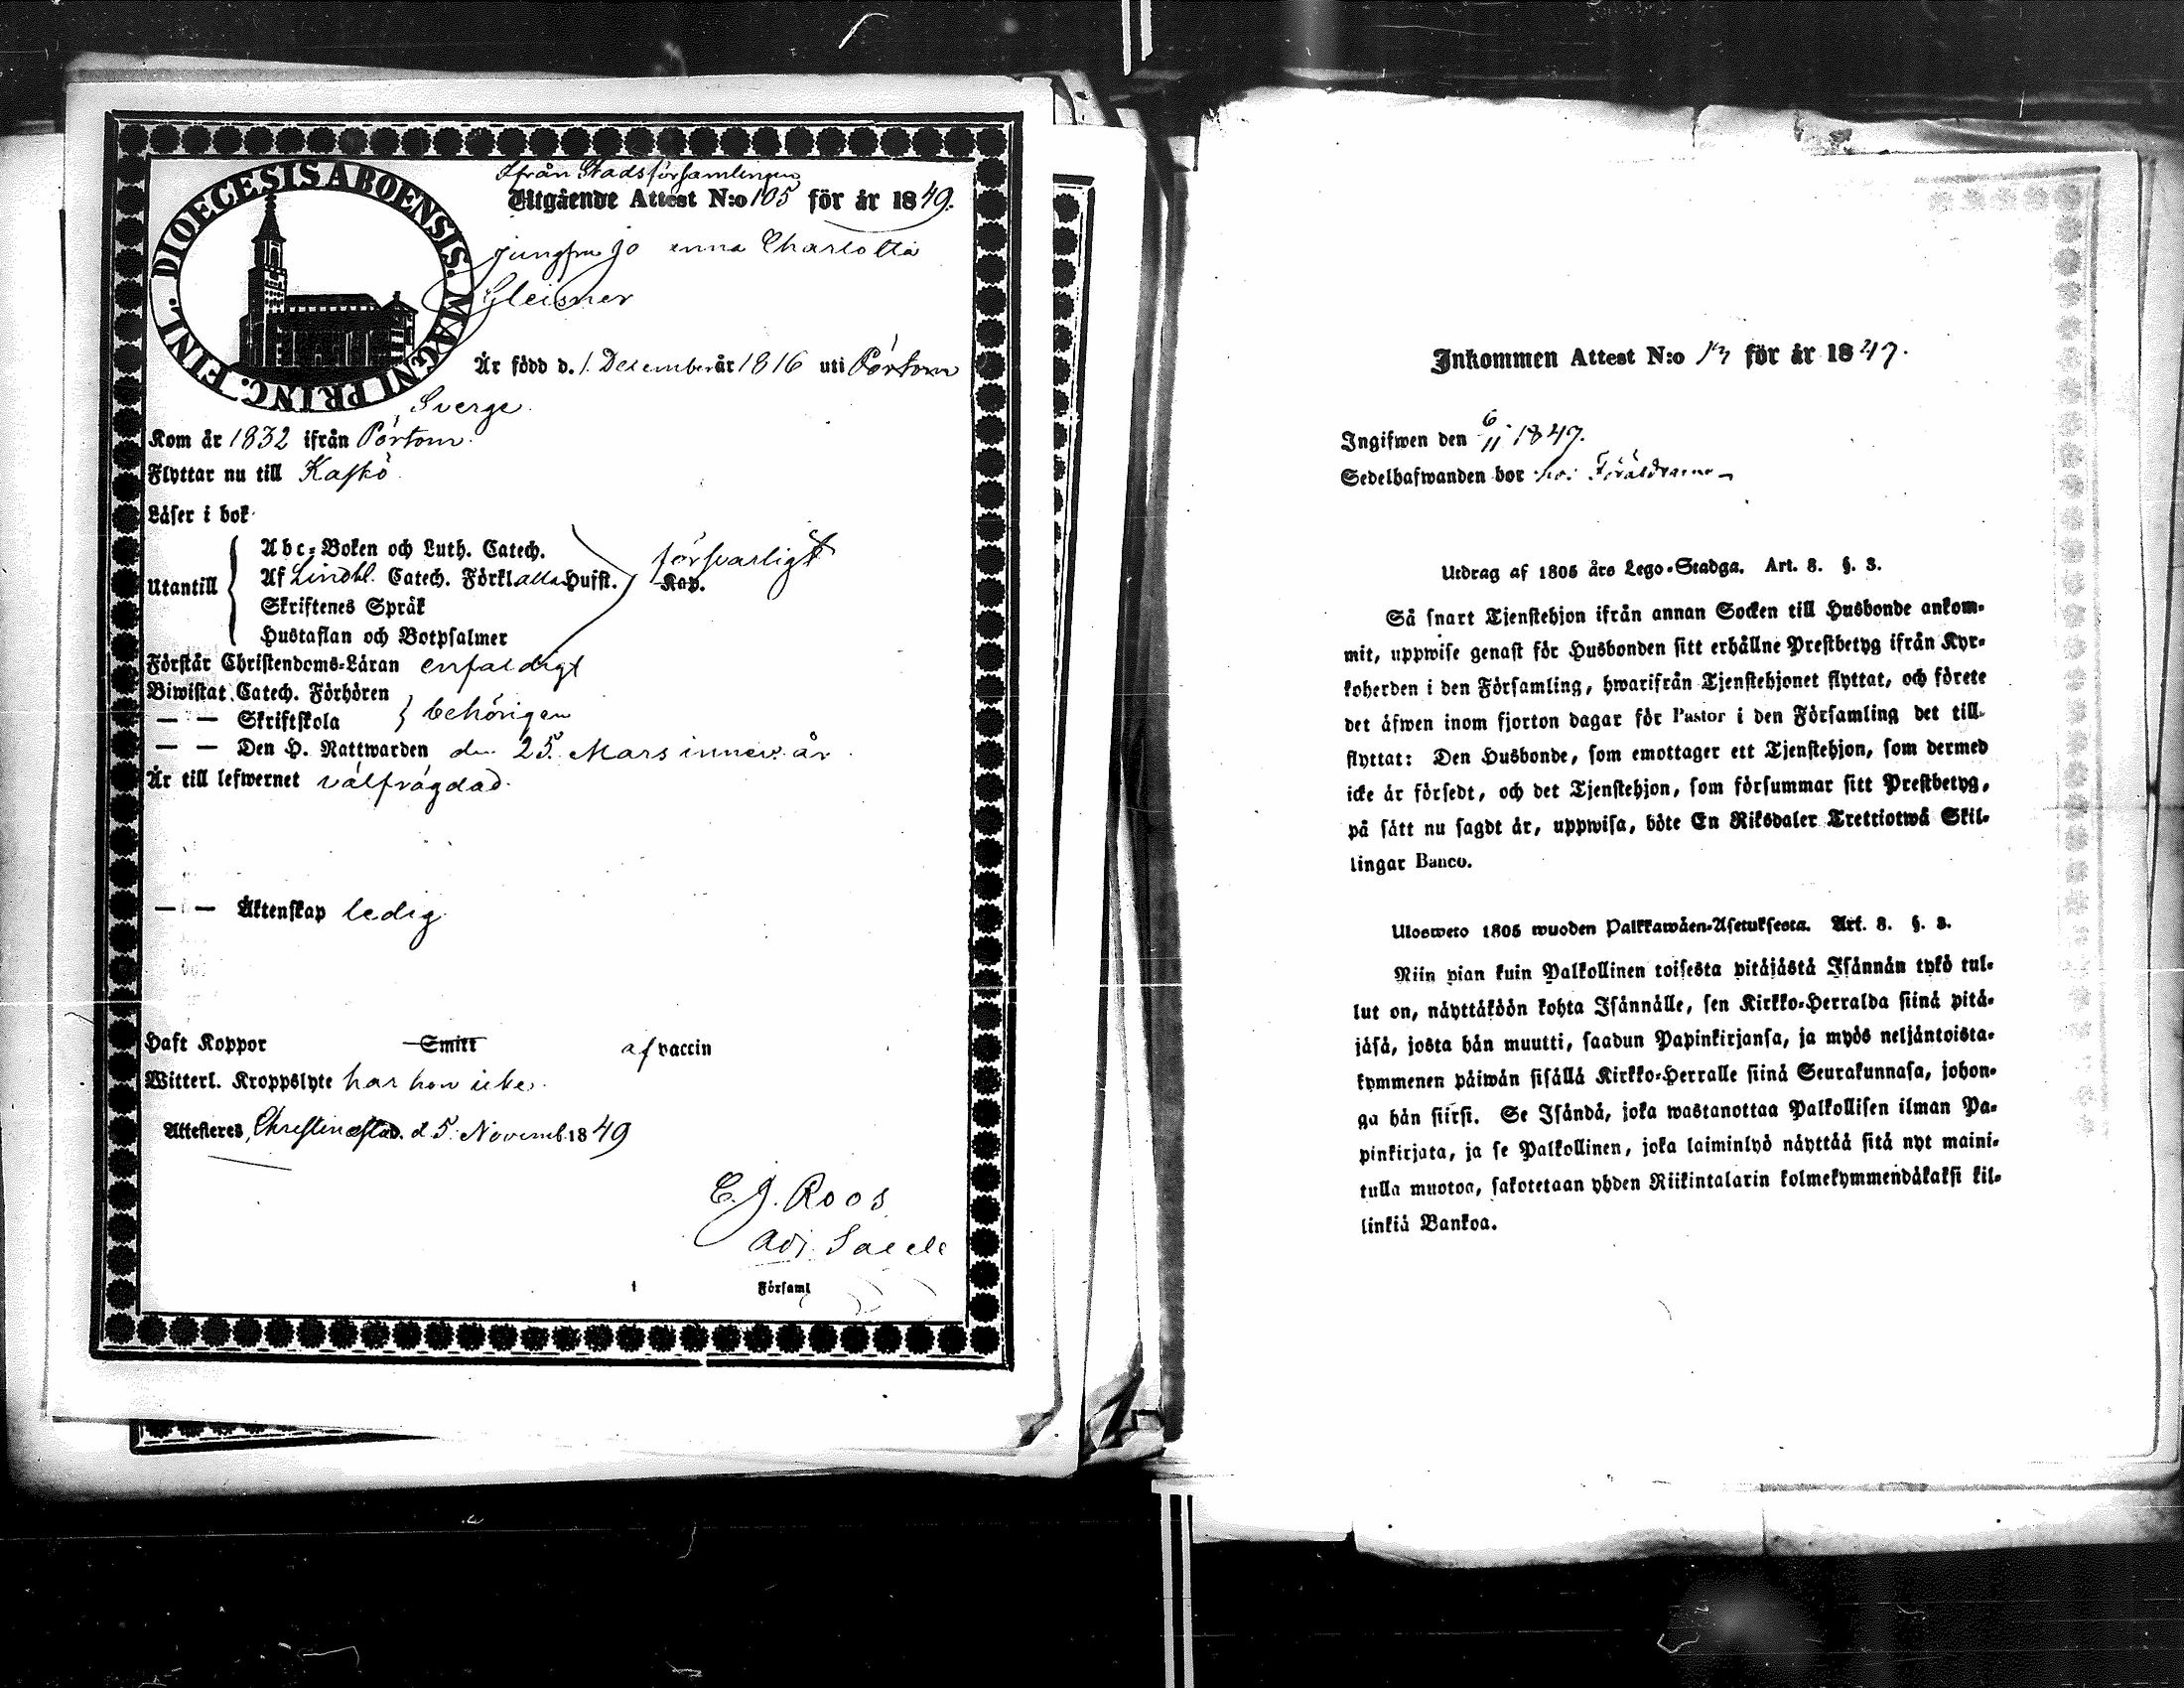 DIOECESIS ABOENSIS. MAGNI PRINC. FINL.
Ifrån Stadsförsamlingen
Utgående Attest N:o 105 för år 1849.
jungfru Jo enna Charlotta
Gleisner
År född d. 1. December år 1816 uti Pörtom
Sverge.
Kom år 1832 ifrån Pörtom.
Flyttar nu till Kaskö.
Läser i bok
försvarligt
Utantill
Abc-Boken och Luth. Catech.
Af Lindbl. Catech. Förkl alla Hufst. Kap.
Skriftenes Språk
Hustaflan och Botpsalmer
Förstår Christendoms-Läran enfaldigt
Biwistat Catech. Förhören
— — Skriftskola
behörigen
— — Den H. Nattwarden den 25. Mars innev. år.
Är till lefwernet välfrägdad.
— — Äktenskap ledig.
Haft Koppor Smitt af vaccin
Witterl. Kroppslyte har hon icke.
Attesteres, Christinestad. d 5. Novemb. 1849
E. J. Roos
Adj. Sacell
i Församl
Inkommen Attest N:o 13 för år 1847.
Ingifwen den 6/11 1847.
Sedelhafwanden bor hos Föräldrarne
Utdrag af 1805 års Lego-Stadga. Art. 8. §. 3.
Så snart Tjenstehjon ifrån annan Socken till Husbonde ankom-
mit, uppwise genast för Husbonden sitt erhållne Prestbetyg ifrån Kyr-
koherden i den Församling, hwarifrån Tjenstehjonet flyttat, och förete
det äfwen inom fjorton dagar för Pastor i den Församling det till-
flyttat: Den Husbonde, som emottager ett Tjenstehjon, som dermed
icke är försedt, och det Tjenstehjon, som försummar sitt Prestbetyg,
på sätt nu sagdt är, uppwisa, böte En Riksdaler Trettiotwå Skil-
lingar Banco.
Uloswето 1805 wuoden Palkkawäen-Asetuksesta. Art. 8. §. 3.
Niin pian kuin Palkollinen toisesta pitäjästä Isännän tykö tul-
lut on, näyttäköön kohta Isännälle, sen Kirkko-Herralda siinä pitä-
jäsä, josta hän muutti, saadun Papinkirjansa, ja myös neljäntoista-
kymmenen päiwän sisällä Kirkko-Herralle siinä Seurakunnasa, johon-
ga hän siirsi. Se Isändä, joka wastanottaa Palkollisen ilman Pa-
pinkirjata, ja se Palkollinen, joka laiminlyö näyttää sitä nyt maini-
tulla muotoa, sakotetaan yhden Riikintalarin kolmekymmendäkaksi kil-
linkiä Bankoa.